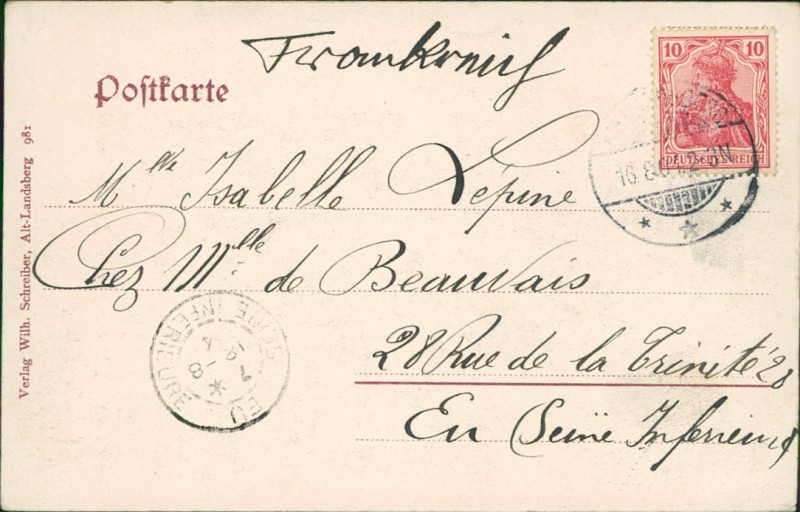 Frankreich
Postkarte
10 10
DEUTSCHES REICH
16.8. 2-3N
Mlle Isabelle Lépine
Chez Mlle de Beauvais
28 Rue de la Trinité 28
Eu (Seine Inferieure)
EU
SEINE INFERIEURE
Verlag Wilh. Schreiber, Alt-Landsberg 981